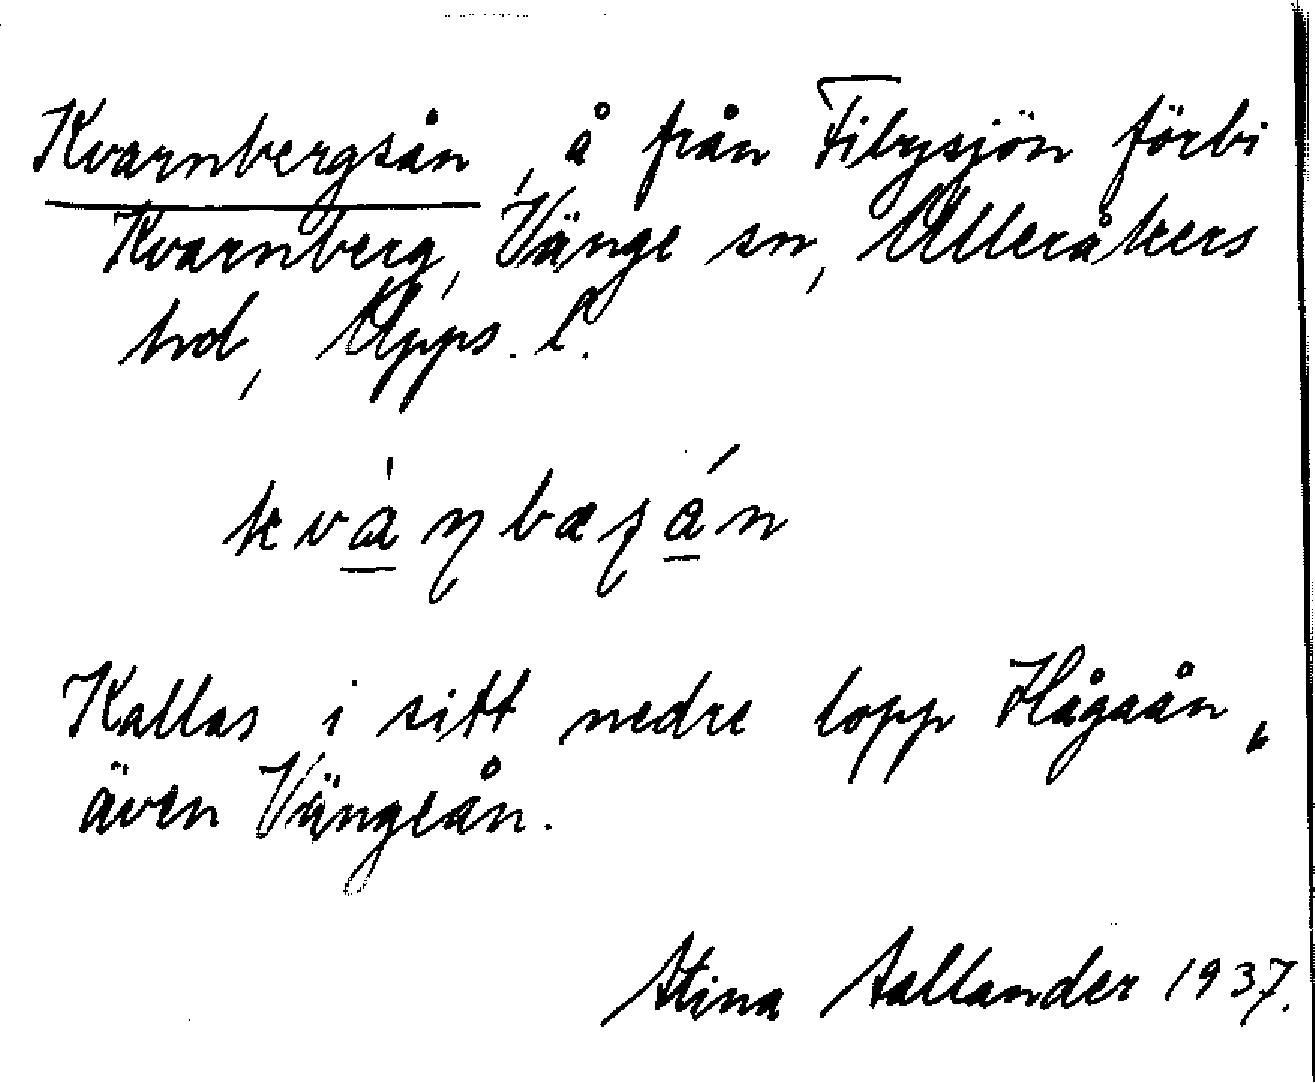 Kvarnbergsån, å från Fibysjön förbi
Kvarnberg, Vänge sn, Ulleråkers
hd, Upps. l.
kvàɳbæʂán
Kallas i sitt nedre lopp Hågaån,
även Vängeån.
Stina Sallander 1937.